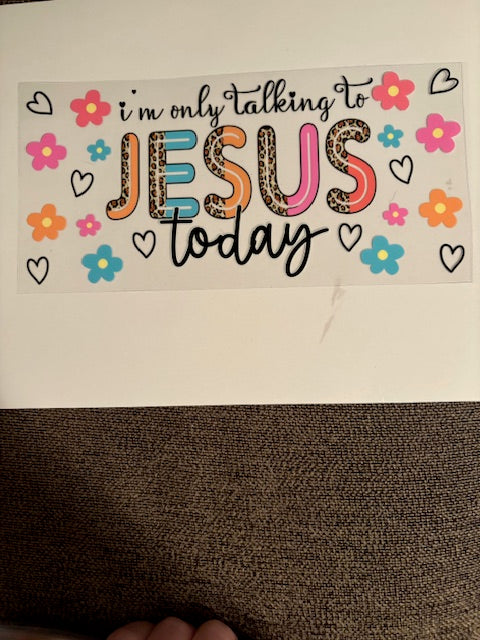 i'm only talking to
JESUS
today